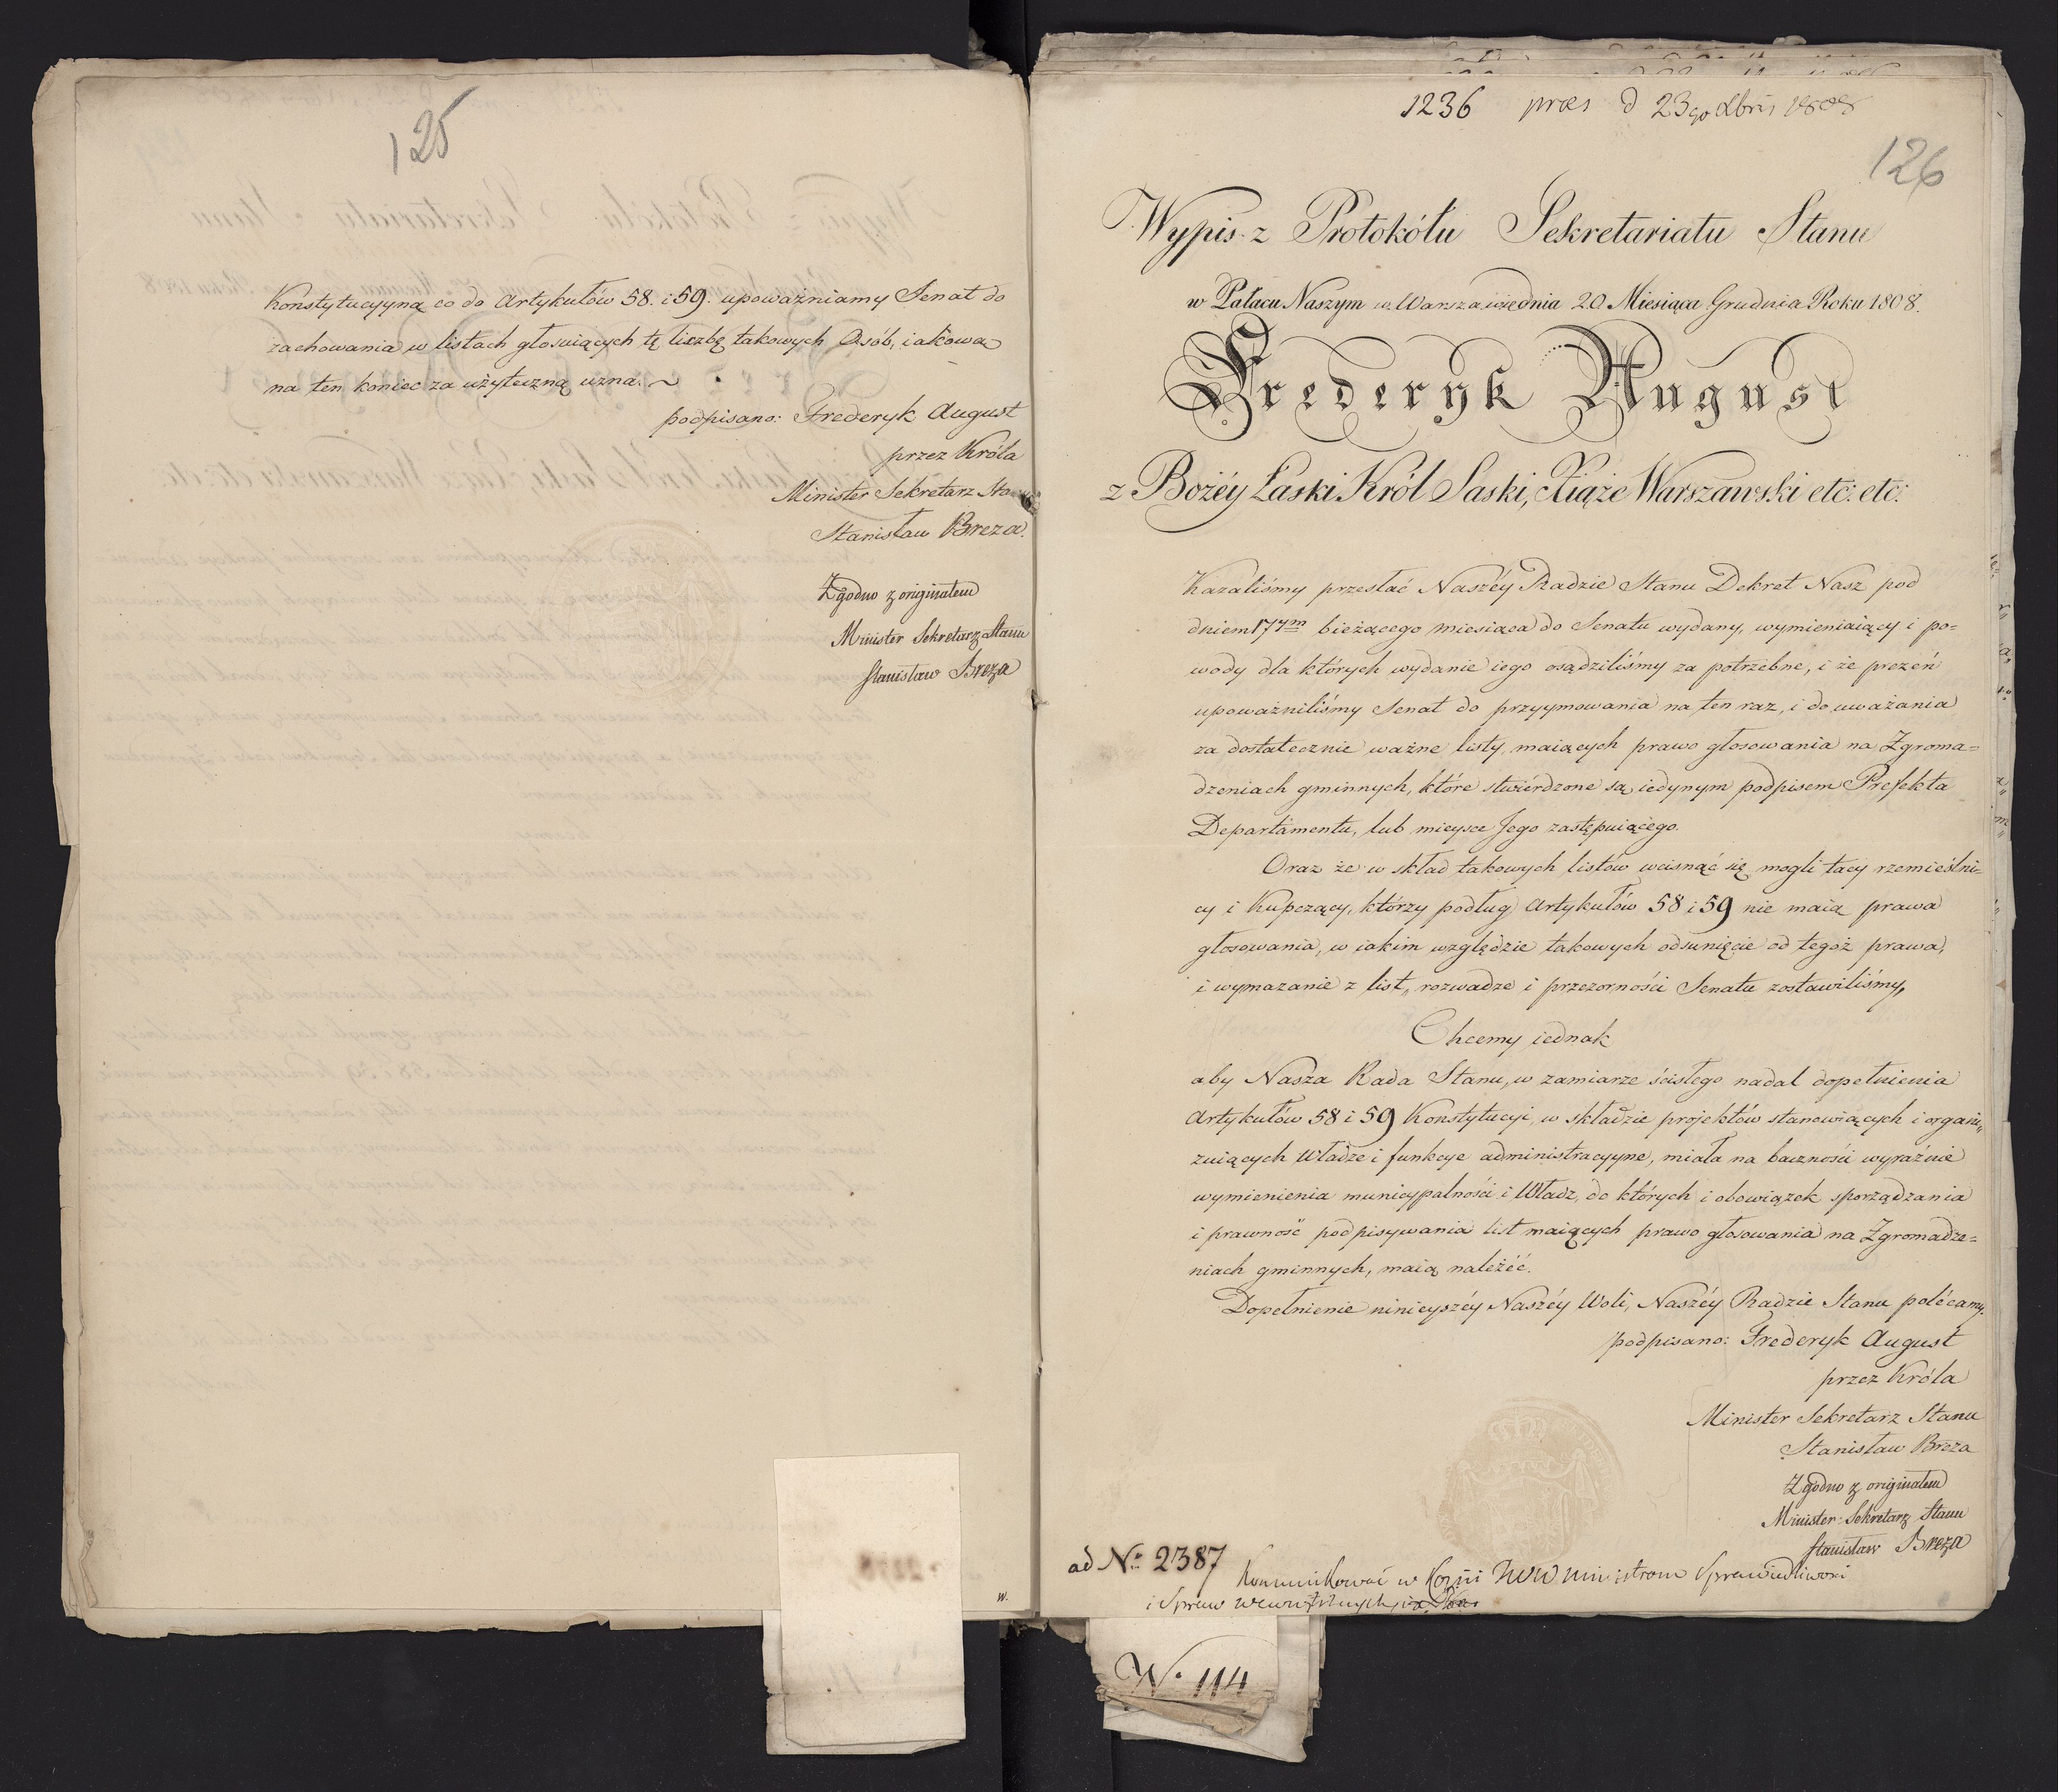 125
Konstytucyyną co do Artykułów 58. i 59. upoważniamy Senat do
zachowania w listach głosuiących tę liczbę takowych Osób, iakową
na ten koniec za użyteczną uzna. ~
podpisano: Frederyk August
przez Króla
Minister Sekretarz
Stanisław Breza.
Zgodno z originałem
Minister Sekretarz Stanu
Stanisław Breza
W.
1236 praes d 23go Xbris 1808
126
Wypis z Protokółu Sekretariatu Stanu
w Pałacu Naszym w Warszawie dnia 20 Miesiąca Grudnia Roku 1808.
Frederyk August
z Bożéy Łaski Król Saski, Xiąże Warszawski etc: etc:
Kazaliśmy przesłać Naszéy Radzie Stanu Dekret Nasz pod
dniem 17ym bieżącego miesiąca do Senatu wydany, wymieniaiący i po=
wody dla których wydanie iego osądziliśmy za potrzebne, i że przezeń
upoważniliśmy Senat do przyymowania na ten raz, i do uważania
za dostatecznie ważne listy maiących prawo głosowania na Zgroma=
dzeniach gminnych, które stwierdzone są iedynym podpisem Prefekta
Departamentu, lub mieysce Jego zastępuiącego.
Oraz że w skład takowych listów wcisnąć się mogli tacy rzemieślni=
cy i Kupczący, którzy podług Artykułów 58 i 59 nie maią prawa
głosowania, w iakim względzie takowych odsunięcie od tegoż prawa,
i wymazanie z list, rozwadze i przezorności Senatu zostawiliśmy,
Chcemy iednak
aby Nasza Rada Stanu, w zamiarze ścisłego nadal dopełnienia
Artykułów 58 i 59 Konstytucyi, w składzie projektów stanowiących i organi„
zuiących Władze i funkcye administracyyne, miała na baczności wyraźnie
wymienienia municypalności i Władz, do których i obowiązek sporządzania
i prawność podpisywania list maiących prawo głosowania na Zgromadze=
niach gminnych, maią należéć.
Dopełnienie ninieyszéy Naszéy Woli, Naszéy Radzie Stanu polécamy.
podpisano: Frederyk August
przez Króla
Minister Sekretarz Stanu
Stanisław Breza
Zgodno z originałem
Minister Sekretarz Stanu
Stanisław Breza
ad No 2387
Kommunikować w Kopii JWW Ministrom Sprawiedliwości
i Spraw wewnętrznych,
N. 114